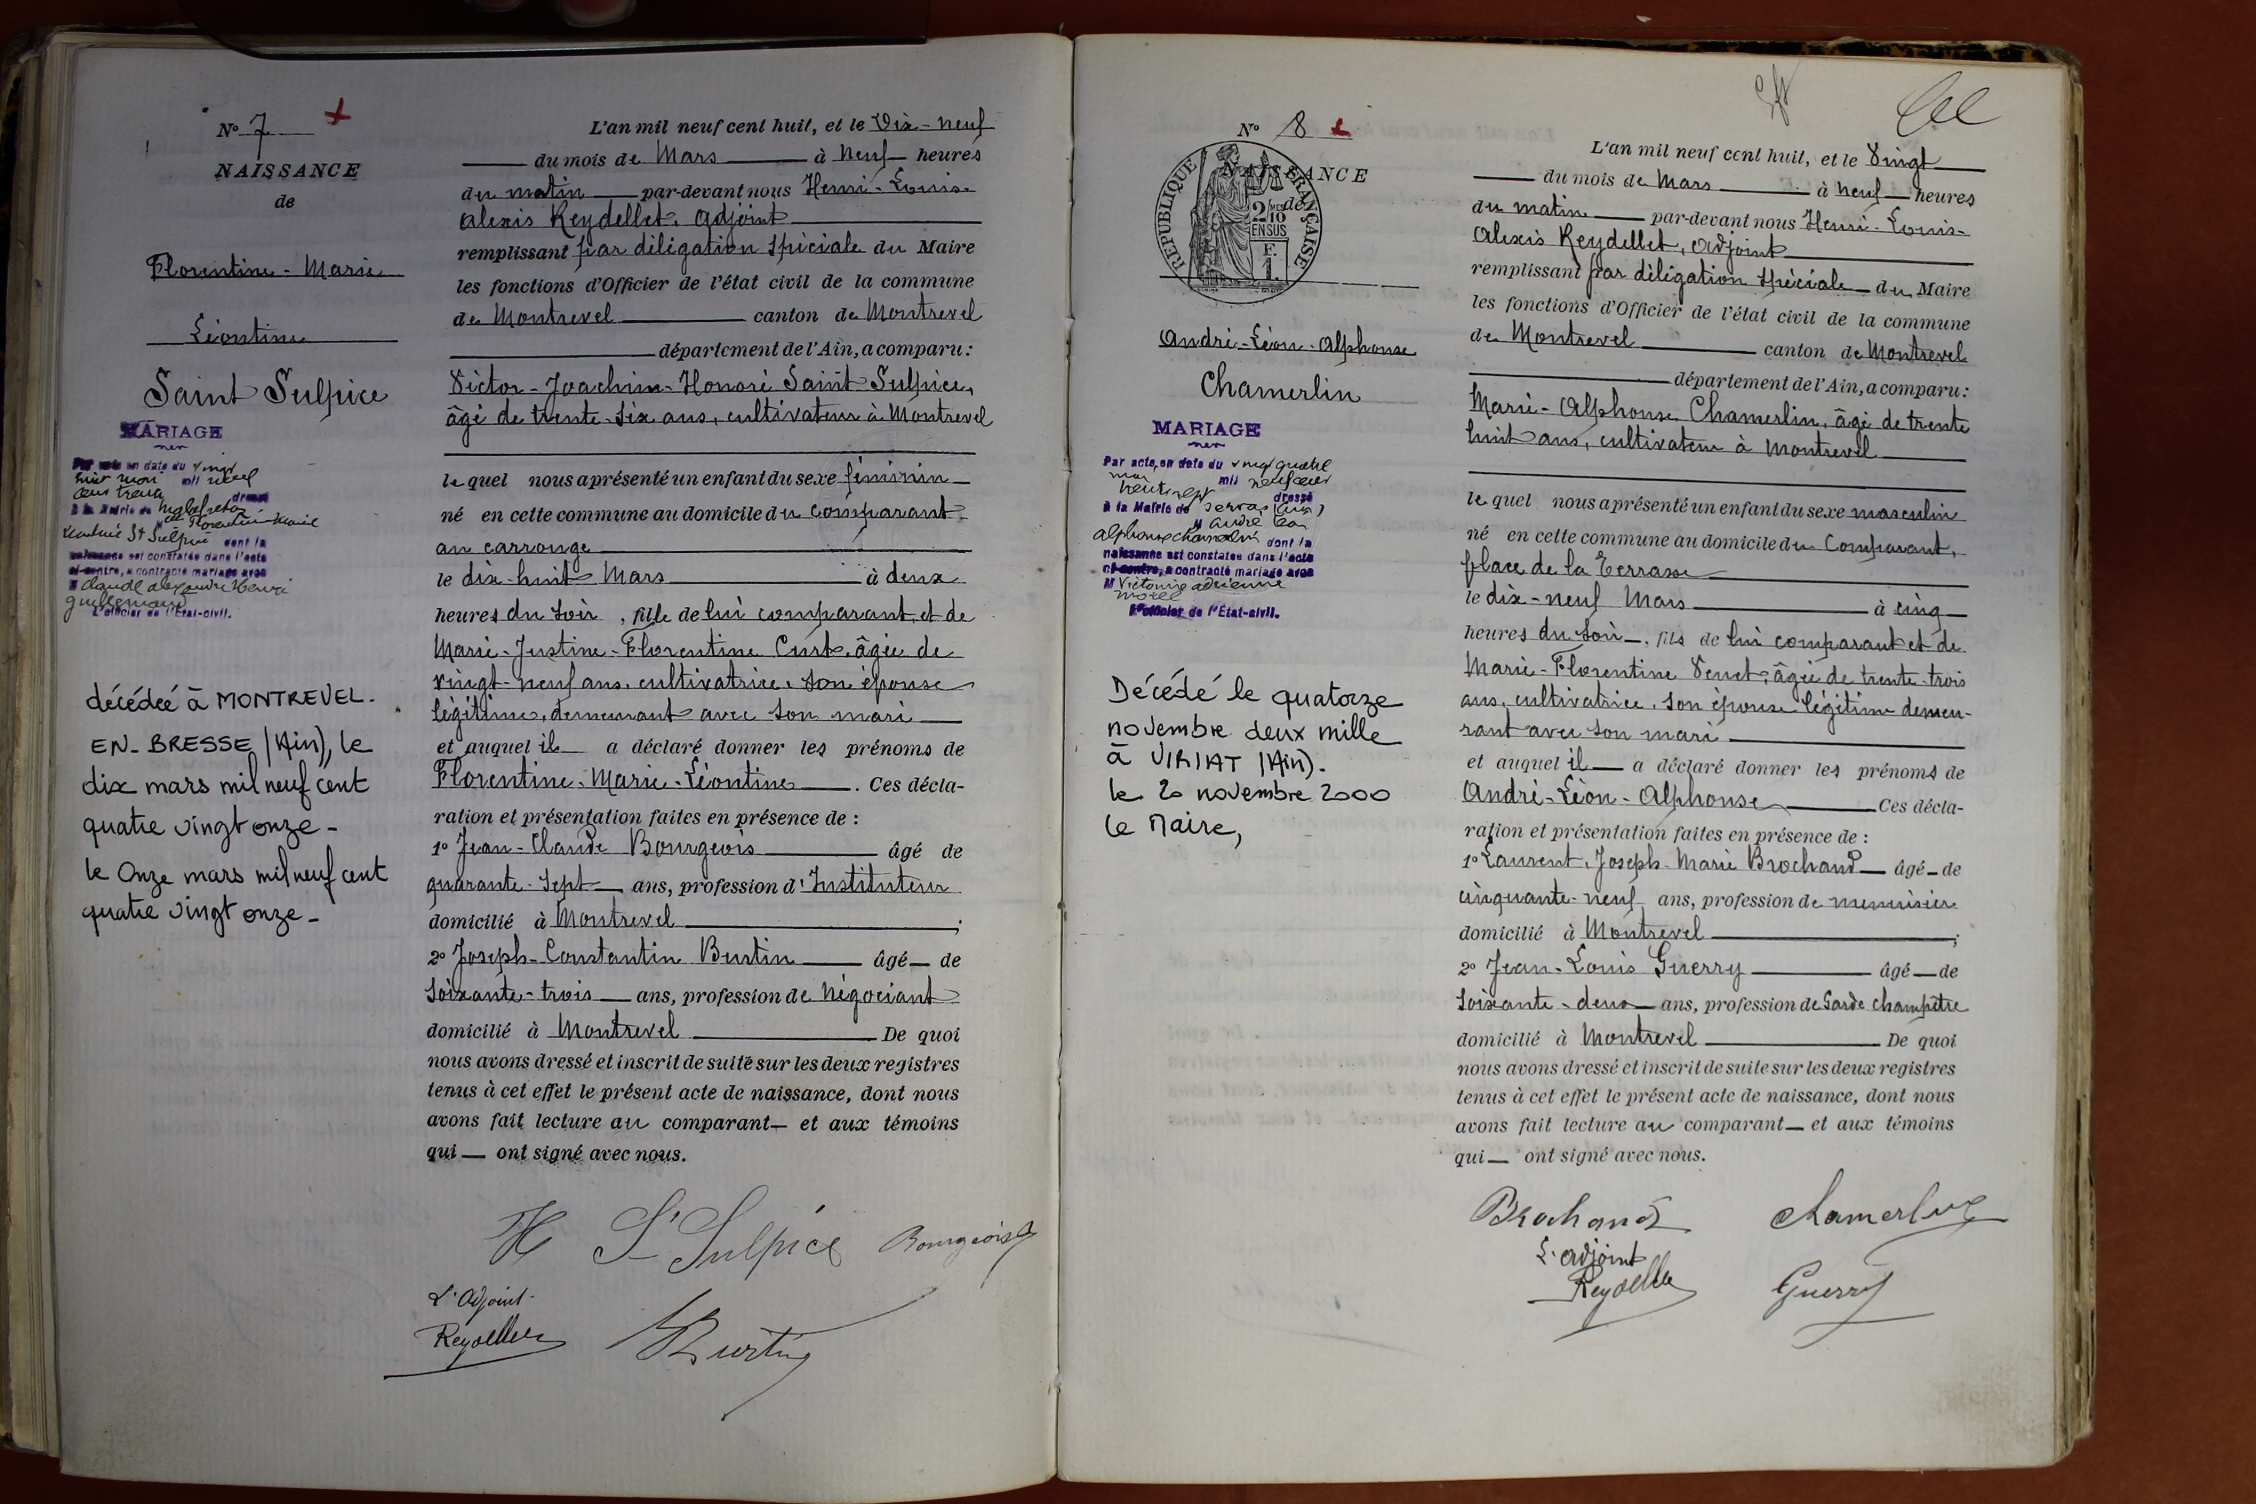 N° 7
NAISSANCE
de
Florentine - Marie
Léontine
Saint Sulpice
MARIAGE
Par acte en date du vingt
huit mai mil neuf
cent trente
dressé
à la Mairie de
Florentine Marie
Léontine St Sulpice dont la
naissance est constatée dans l'acte
ci-contre, a contracté mariage avec
M Claude Alexandre Henri
L'officier de l'État-civil.
décédée à MONTREVEL-
EN-BRESSE (Ain), le
dix mars mil neuf cent
quatre vingt onze -
le Onze mars mil neuf cent
quatre vingt onze -
L'an mil neuf cent huit, et le Dix-neuf
du mois de Mars à neuf heures
du matin par-devant nous Henri-Louis-
Alexis Reydellet, Adjoint
remplissant par délégation spéciale du Maire
les fonctions d'Officier de l'état civil de la commune
de Montrevel canton de Montrevel
département de l'Ain, a comparu:
Victor-Joachim-Honoré Saint Sulpice,
âgé de trente-six ans, cultivateur à Montrevel
lequel nous a présenté un enfant du sexe féminin
né en cette commune au domicile du comparant
au carrouge
le dix-huit Mars à deux
heures du soir, fille de lui comparant et de
Marie-Justine-Florentine Curt, âgée de
vingt-neuf ans, cultivatrice, son épouse
légitime, demeurant avec son mari
et auquel il a déclaré donner les prénoms de
Florentine-Marie-Léontine. Ces décla-
ration et présentation faites en présence de :
1° Jean-Claude Bourgeois âgé de
quarante-sept ans, profession d'Instituteur
domicilié à Montrevel ;
2° Joseph-Constantin Burtin âgé de
soixante-trois ans, profession de Négociant
domicilié à Montrevel De quoi
nous avons dressé et inscrit de suite sur les deux registres
tenus à cet effet le présent acte de naissance, dont nous
avons fait lecture au comparant et aux témoins
qui ont signé avec nous.
H St Sulpice Bourgeois
L'Adjoint
Reydellet Burtin
N° 8
NAISSANCE
de
RÉPUBLIQUE FRANÇAISE
2/10
EN SUS
F.
1.
André-Léon-Alphonse
Chamerlin
MARIAGE
Par acte, en date du vingt quatre
mai mil neuf cent
trente sept dressé
à la Mairie de Servas (Ain)
M André Léon
Alphonse Chamerlin dont la
naissance est constatée dans l'acte
ci-contre, a contracté mariage avec
M Victorine Adrienne
Morel
L'officier de l'État-civil.
Décédé le quatorze
novembre deux mille
à VIRIAT (Ain).
le 20 novembre 2000
Le Maire,
L'an mil neuf cent huit, et le Vingt
du mois de Mars à neuf heures
du matin par-devant nous Henri-Louis-
Alexis Reydellet, Adjoint
remplissant par délégation spéciale du Maire
les fonctions d'Officier de l'état civil de la commune
de Montrevel canton de Montrevel
département de l'Ain, a comparu:
Marie-Alphonse Chamerlin, âgé de trente
huit ans, cultivateur à Montrevel
lequel nous a présenté un enfant du sexe masculin
né en cette commune au domicile du Comparant,
place de la Terrasse
le dix-neuf Mars à cinq
heures du soir, fils de lui comparant et de
Marie-Florentine Venet, âgée de trente-trois
ans, cultivatrice, son épouse légitime demeu-
rant avec son mari
et auquel il a déclaré donner les prénoms de
André-Léon-Alphonse Ces décla-
ration et présentation faites en présence de :
1° Laurent-Joseph-Marie Brochand âgé de
cinquante-neuf ans, profession de menuisier
domicilié à Montrevel ;
2° Jean-Louis Guerry âgé de
soixante-deux ans, profession de Garde champêtre
domicilié à Montrevel De quoi
nous avons dressé et inscrit de suite sur les deux registres
tenus à cet effet le présent acte de naissance, dont nous
avons fait lecture au comparant et aux témoins
qui ont signé avec nous.
Brochand Chamerlin
L'adjoint
Reydellet Guerry